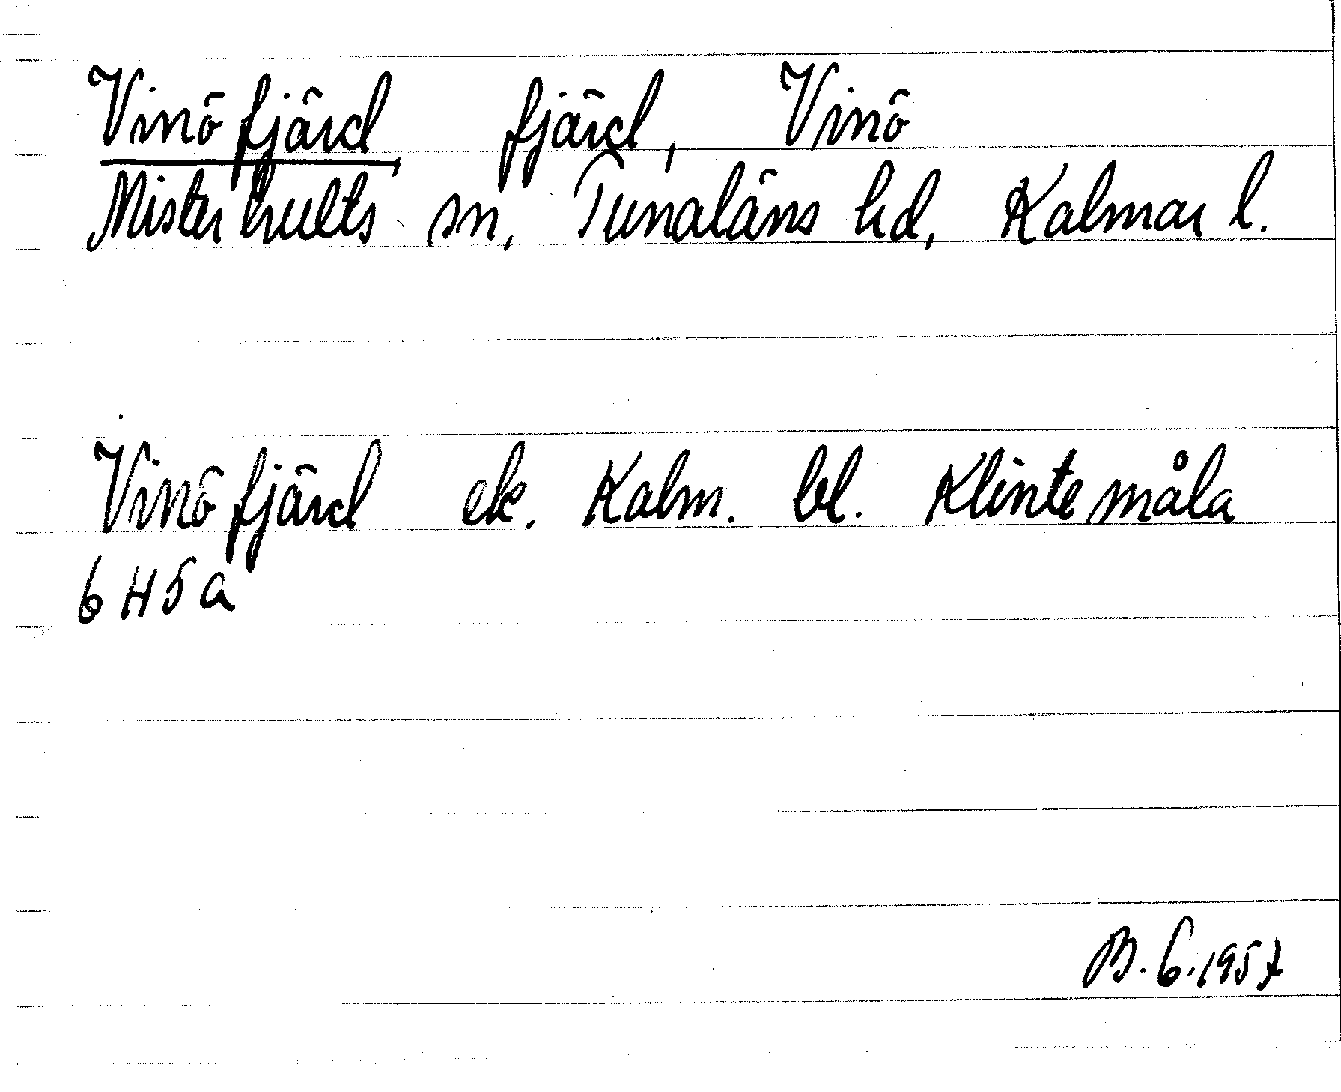 Vinö fjärd fjärd, Vinö
Misterhults sn, Tunaläns hd, Kalmar l.
Vinö fjärd ek. Kalm. bl. Klintemåla
6 H 5 a
B. G. 1957